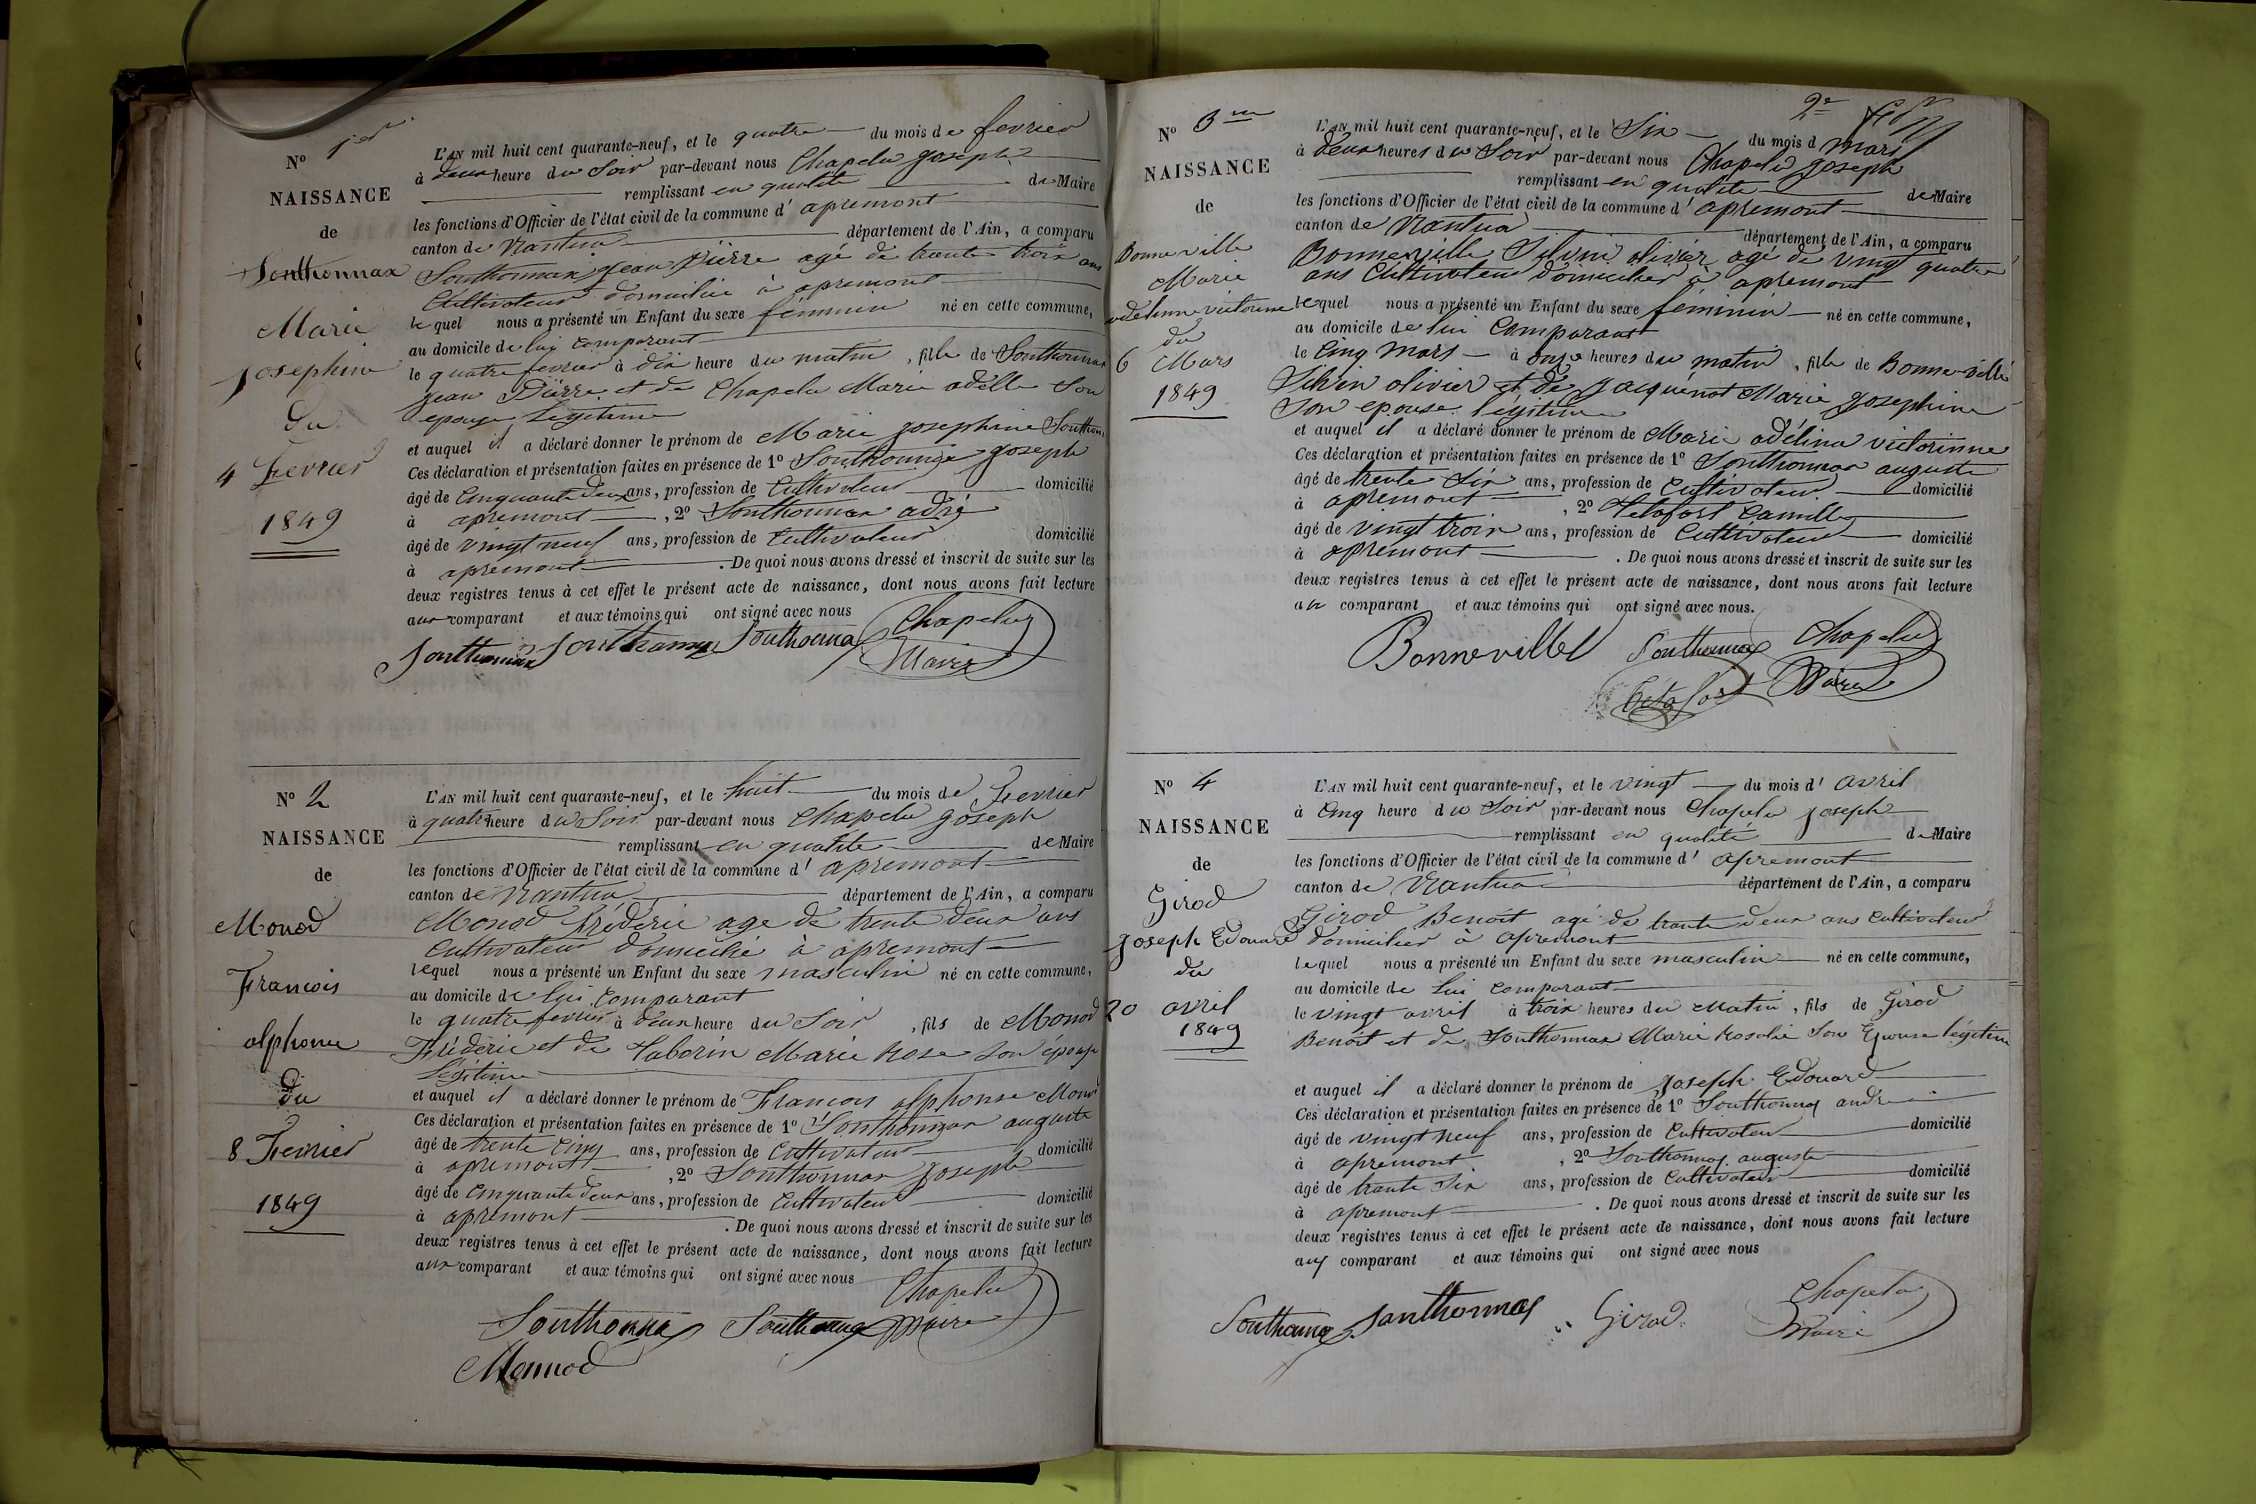 N° 1er
NAISSANCE
de
Southonnax
Marie
Josephine
Du
4 Fevrier
1849
L'AN mil huit cent quarante-neuf, et le quatre du mois de fevrier
à deux heure du Soir par-devant nous Chapelu Joseph
remplissant en qualité de Maire
les fonctions d'Officier de l'état civil de la commune d' apremont
canton de Nantua département de l'Ain, a comparu
Southonnax Jean Pierre agé de trante trois ans
Cultivateur domicilié à apremont
le quel nous a présenté un Enfant du sexe féminin né en cette commune,
au domicile de lui comparant
le quatre fevrier à dix heure du matin, fille de Southonnax
Jean Pierre et de Chapelu Marie adélle Son
epouse légitime
et auquel il a déclaré donner le prénom de Marie Josephine Southon
Ces déclaration et présentation faites en présence de 1° Southonnax Joseph
âgé de Cinquante deux ans, profession de Cultivateur domicilié
à apremont, 2° Southonnax adré
âgé de vingt neuf ans, profession de Cultivateur domicilié
à apremont. De quoi nous avons dressé et inscrit de suite sur les
deux registres tenus à cet effet le présent acte de naissance, dont nous avons fait lecture
aux comparant et aux témoins qui ont signé avec nous
Chapelu
Southonnax Southonnax Southonnax Maire
N° 2
NAISSANCE
de
Monod
Francois
alphonse
du
8 Fevrier
1849
L'AN mil huit cent quarante-neuf, et le huit du mois de Fevrier
à quatre heure du Soir par-devant nous Chapelu Joseph
remplissant en qualité de Maire
les fonctions d'Officier de l'état civil de la commune d' apremont
canton de Nantua département de l'Ain, a comparu
Monod Frédéric age de trente deux ans
Cultivateur domicilié à apremont
lequel nous a présenté un Enfant du sexe masculin né en cette commune,
au domicile de lui comparant
le quatre fevrier à deux heure du Soir, fils de Monod
Frédéric et de Taborin Marie Rose Son épouse
Légitime
et auquel il a déclaré donner le prénom de Francois alphonse Monod
Ces déclaration et présentation faites en présence de 1° Southonnax auguste
âgé de trente Cinq ans, profession de Cultivateur domicilié
à apremont, 2° Southonnax Joseph
âgé de Cinquante deux ans, profession de Cultivateur domicilié
à apremont. De quoi nous avons dressé et inscrit de suite sur les
deux registres tenus à cet effet le présent acte de naissance, dont nous avons fait lecture
aux comparant et aux témoins qui ont signé avec nous
Chapelu
Southonnax Southonnax Maire
Monnod
2e
N° 3me
NAISSANCE
de
Bonneville
Marie
adélinne victorinne
du
6 Mars
1849
L'AN mil huit cent quarante-neuf, et le Six du mois d Mars
à deux heures du Soir par-devant nous Chapelu Joseph
remplissant en qualité de Maire
les fonctions d'Officier de l'état civil de la commune d' apremont
canton de Nantua département de l'Ain, a comparu
Bonneville Silvin olivier agé de vingt quatre
ans Cultivateur domicilier à apremont
lequel nous a présenté un Enfant du sexe féminin né en cette commune,
au domicile de lui Comparant
le Cinq mars à onze heures du matin, fille de Bonneville
Silvin olivier et de Jacquenot Marie Josephine
Son epouse légitime
et auquel il a déclaré donner le prénom de Marie adélina victorinne
Ces déclaration et présentation faites en présence de 1° Southonnax auguste
âgé de trente Six ans, profession de Cultivateur domicilié
à apremont, 2° Tétafort Camille
âgé de vingt trois ans, profession de Cultivateur domicilié
à apremont. De quoi nous avons dressé et inscrit de suite sur les
deux registres tenus à cet effet le présent acte de naissance, dont nous avons fait lecture
au comparant et aux témoins qui ont signé avec nous.
Bonneville Southonnax Chapelu
Tetafort Maire
N° 4
NAISSANCE
de
Girod
Joseph Edouard
du
20 avril
1849
L'AN mil huit cent quarante-neuf, et le vingt du mois d' avril
à Cinq heure du Soir par-devant nous Chapelu Joseph
remplissant en qualité de Maire
les fonctions d'Officier de l'état civil de la commune d' apremont
canton de Nantua département de l'Ain, a comparu
Girod Benoit agé de trante deux ans Cultivateur
domicilier à apremont
lequel nous a présenté un Enfant du sexe masculin né en cette commune,
au domicile de lui comparant
le vingt avril à trois heures du Matin, fils de Girod
Benoit et de Southonnax Marie Rosalie Son Epouse légitime
et auquel il a déclaré donner le prénom de Joseph Edouard
Ces déclaration et présentation faites en présence de 1° Southonnax andre
âgé de vingt neuf ans, profession de Cultivateur domicilié
à apremont, 2° Southonnax auguste
âgé de trante Six ans, profession de Cultivateur domicilié
à apremont. De quoi nous avons dressé et inscrit de suite sur les
deux registres tenus à cet effet le présent acte de naissance, dont nous avons fait lecture
aux comparant et aux témoins qui ont signé avec nous
Chapelu
Southonnax Southonnax Girod Maire